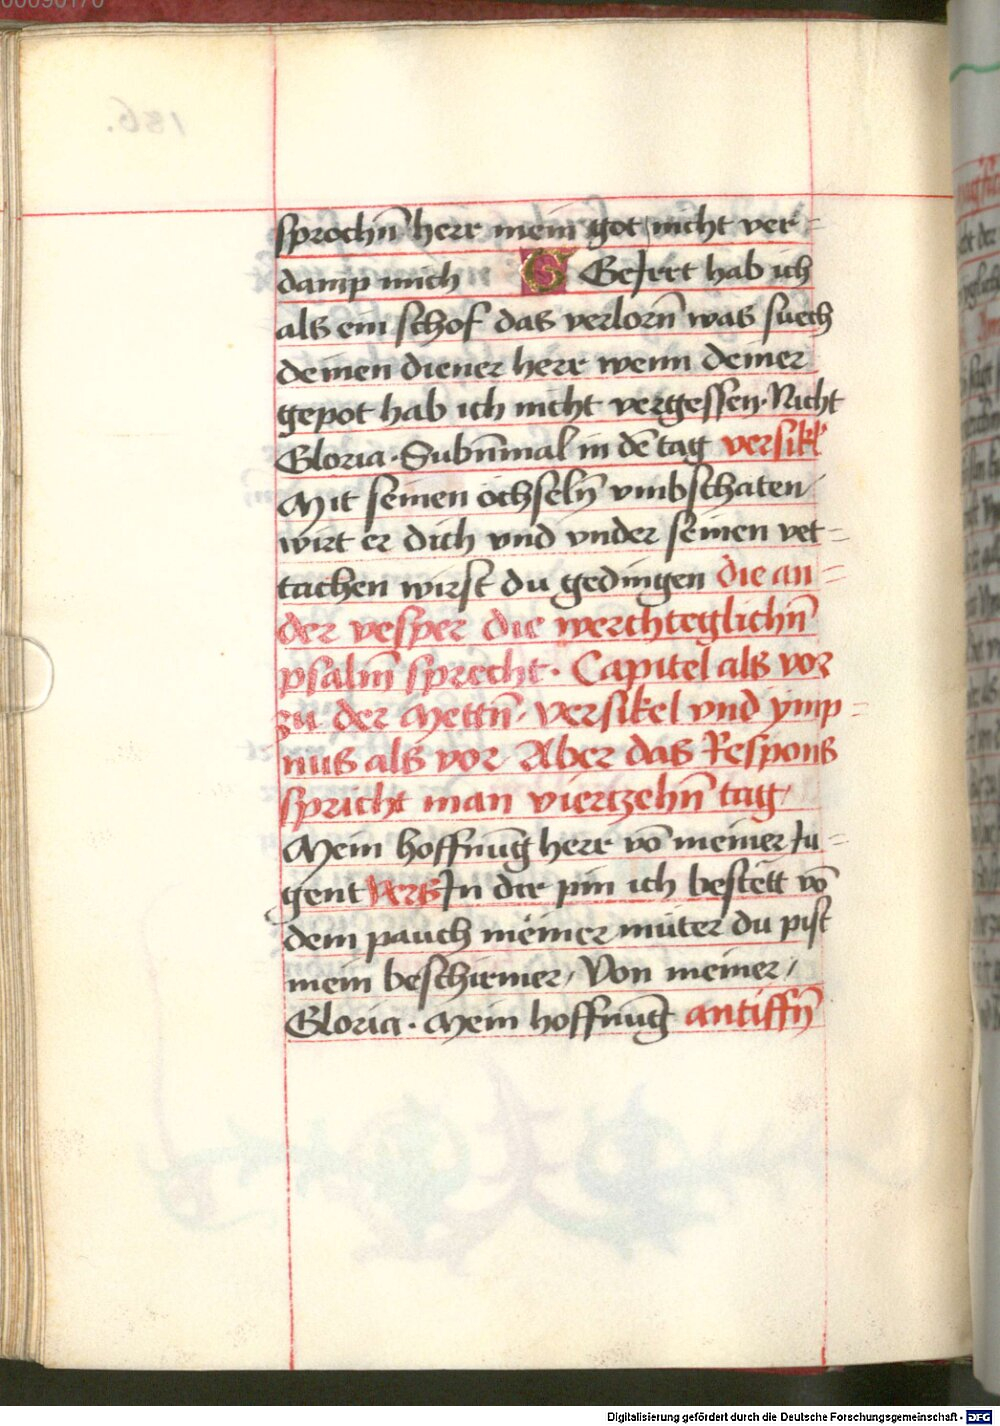 sprochn̄ herr mein got nicht ver=
damp mich G GeJrret hab ich
als ein schof das verlorn̄ was suech
deinen diener herr wenn deiner
gepot hab ich nicht vergessen. Nicht
Gloria. Subn̄mal in dē tag versikl'
Mit seinen öchseln̄ vmbschaten
wirt er dich vnd vnder seinen vet=
tachen wirst du gedingen die an=
der vesper die werchteglichn̄
psalm̄ sprecht. Capitel als vor
zu der Mettn̄. versikel vnd ymp=
nus als vor Aber das Respons
spricht man viertzehn̄ tag/
Mein hoffnūg herr vō meiner Ju=
gent Vers In dir pin ich bestëtt vō
dem pauch meiner müter du pist
mein beschirmer/ Von meiner/
Gloria. Mein hoffnūg antiffn̄
Digitalisierung gefördert durch die Deutsche Forschungsgemeinschaft - DFG